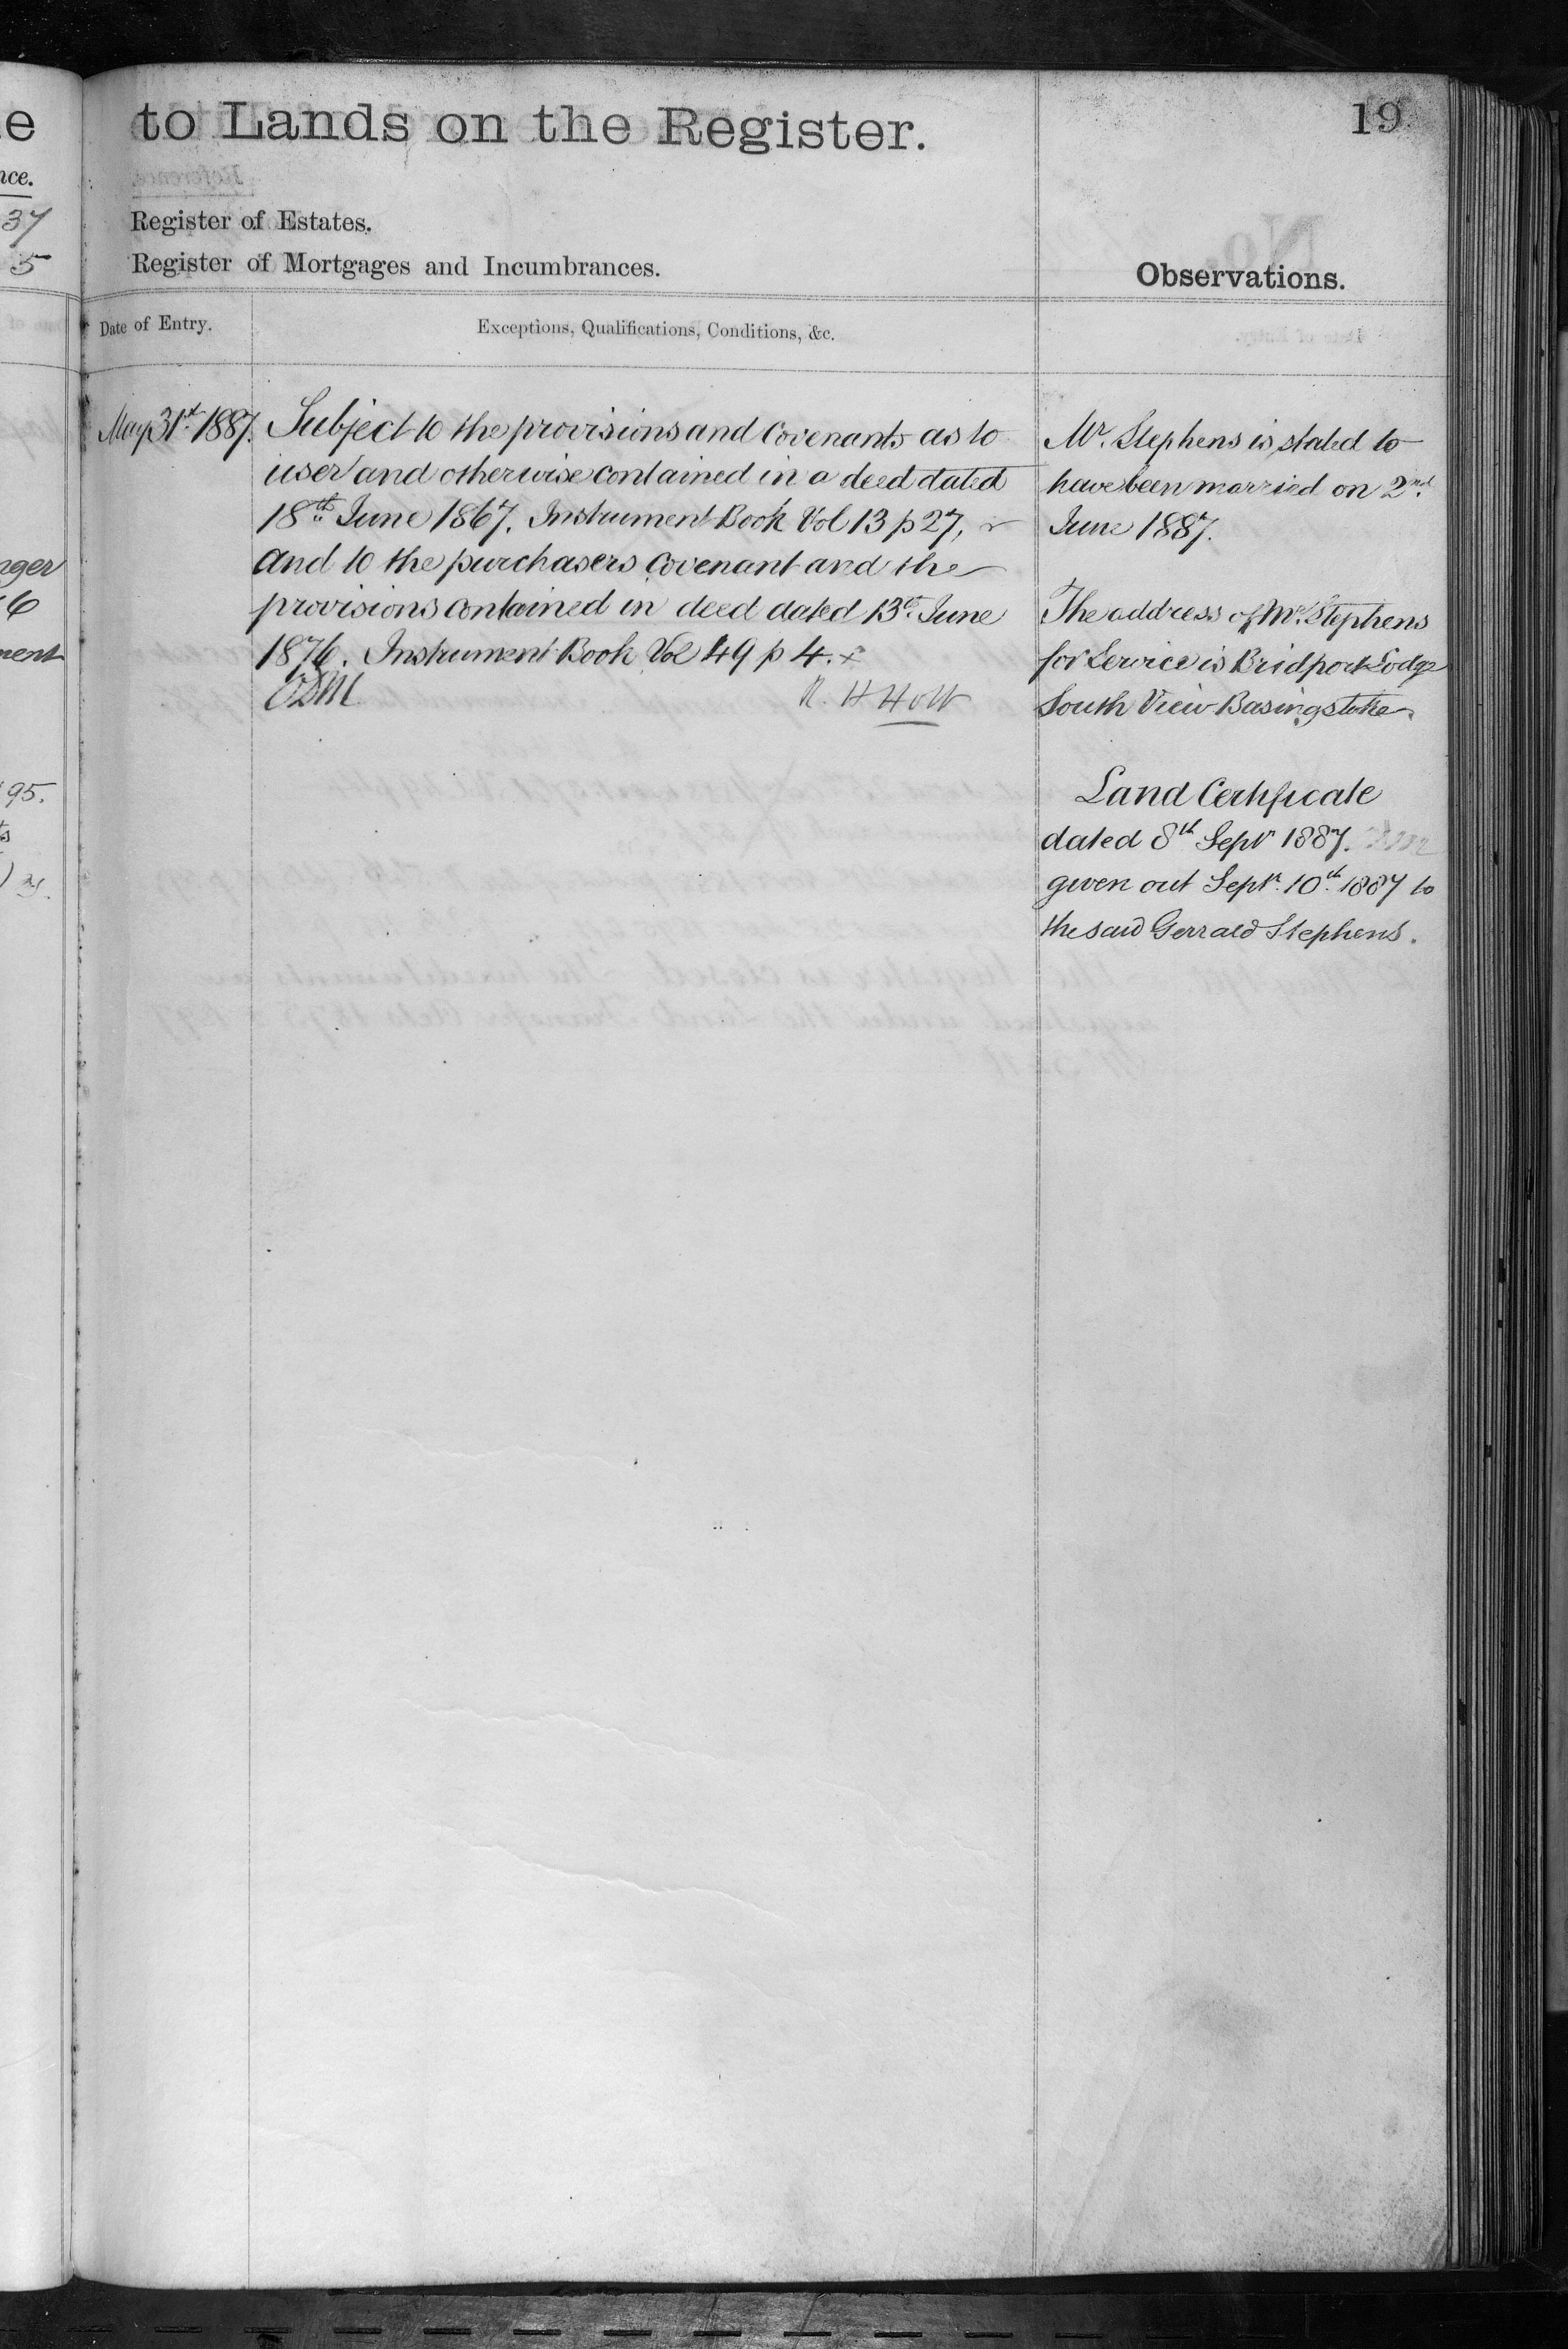 e
nce.
37
5
nger
6
ment
95.
to Lands on the Register.
19
Register of Estates.
Register of Mortgages and Incumbrances.
Observations.
Date of Entry.
Exceptions, Qualifications, Conditions, &c.
May 31st 1887.
Subject to the provisions and Covenants as to
user and otherwise contained in a deed dated
18th June 1867. Instrument Book Vol 13 p 27,
and to the purchasers covenant and the
provisions contained in deed dated 13th June
1876. Instrument Book Vol 49 p 4. x
R. H Holt
Mr. Stephens is stated to
have been married on 2nd
June 1887.
The address of Mr. Stephens
for Service is Bridport Lodge
South View Basingstoke
Land Certificate
dated 8th Septr 1887.
given out Septr. 10th 1887 to
the said Gerrald Stephens.